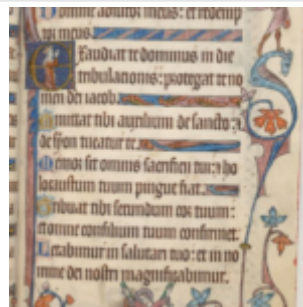 Domine adiutor meus: et redemp
tor meus.
Exaudiat te dominus in die
tribulationis: protegat te no
men dei iacob.
Mittat tibi auxilium de sancto: &
de syon tueatur te.
Memor sit omnis sacrificii tui: & ho
locaustum tuum pingue fiat.
Tribuat tibi secundum cor tuum:
et omne consilium tuum confirmet.
Letabimur in salutari tuo: et in no
mine dei nostri magnificabimur.